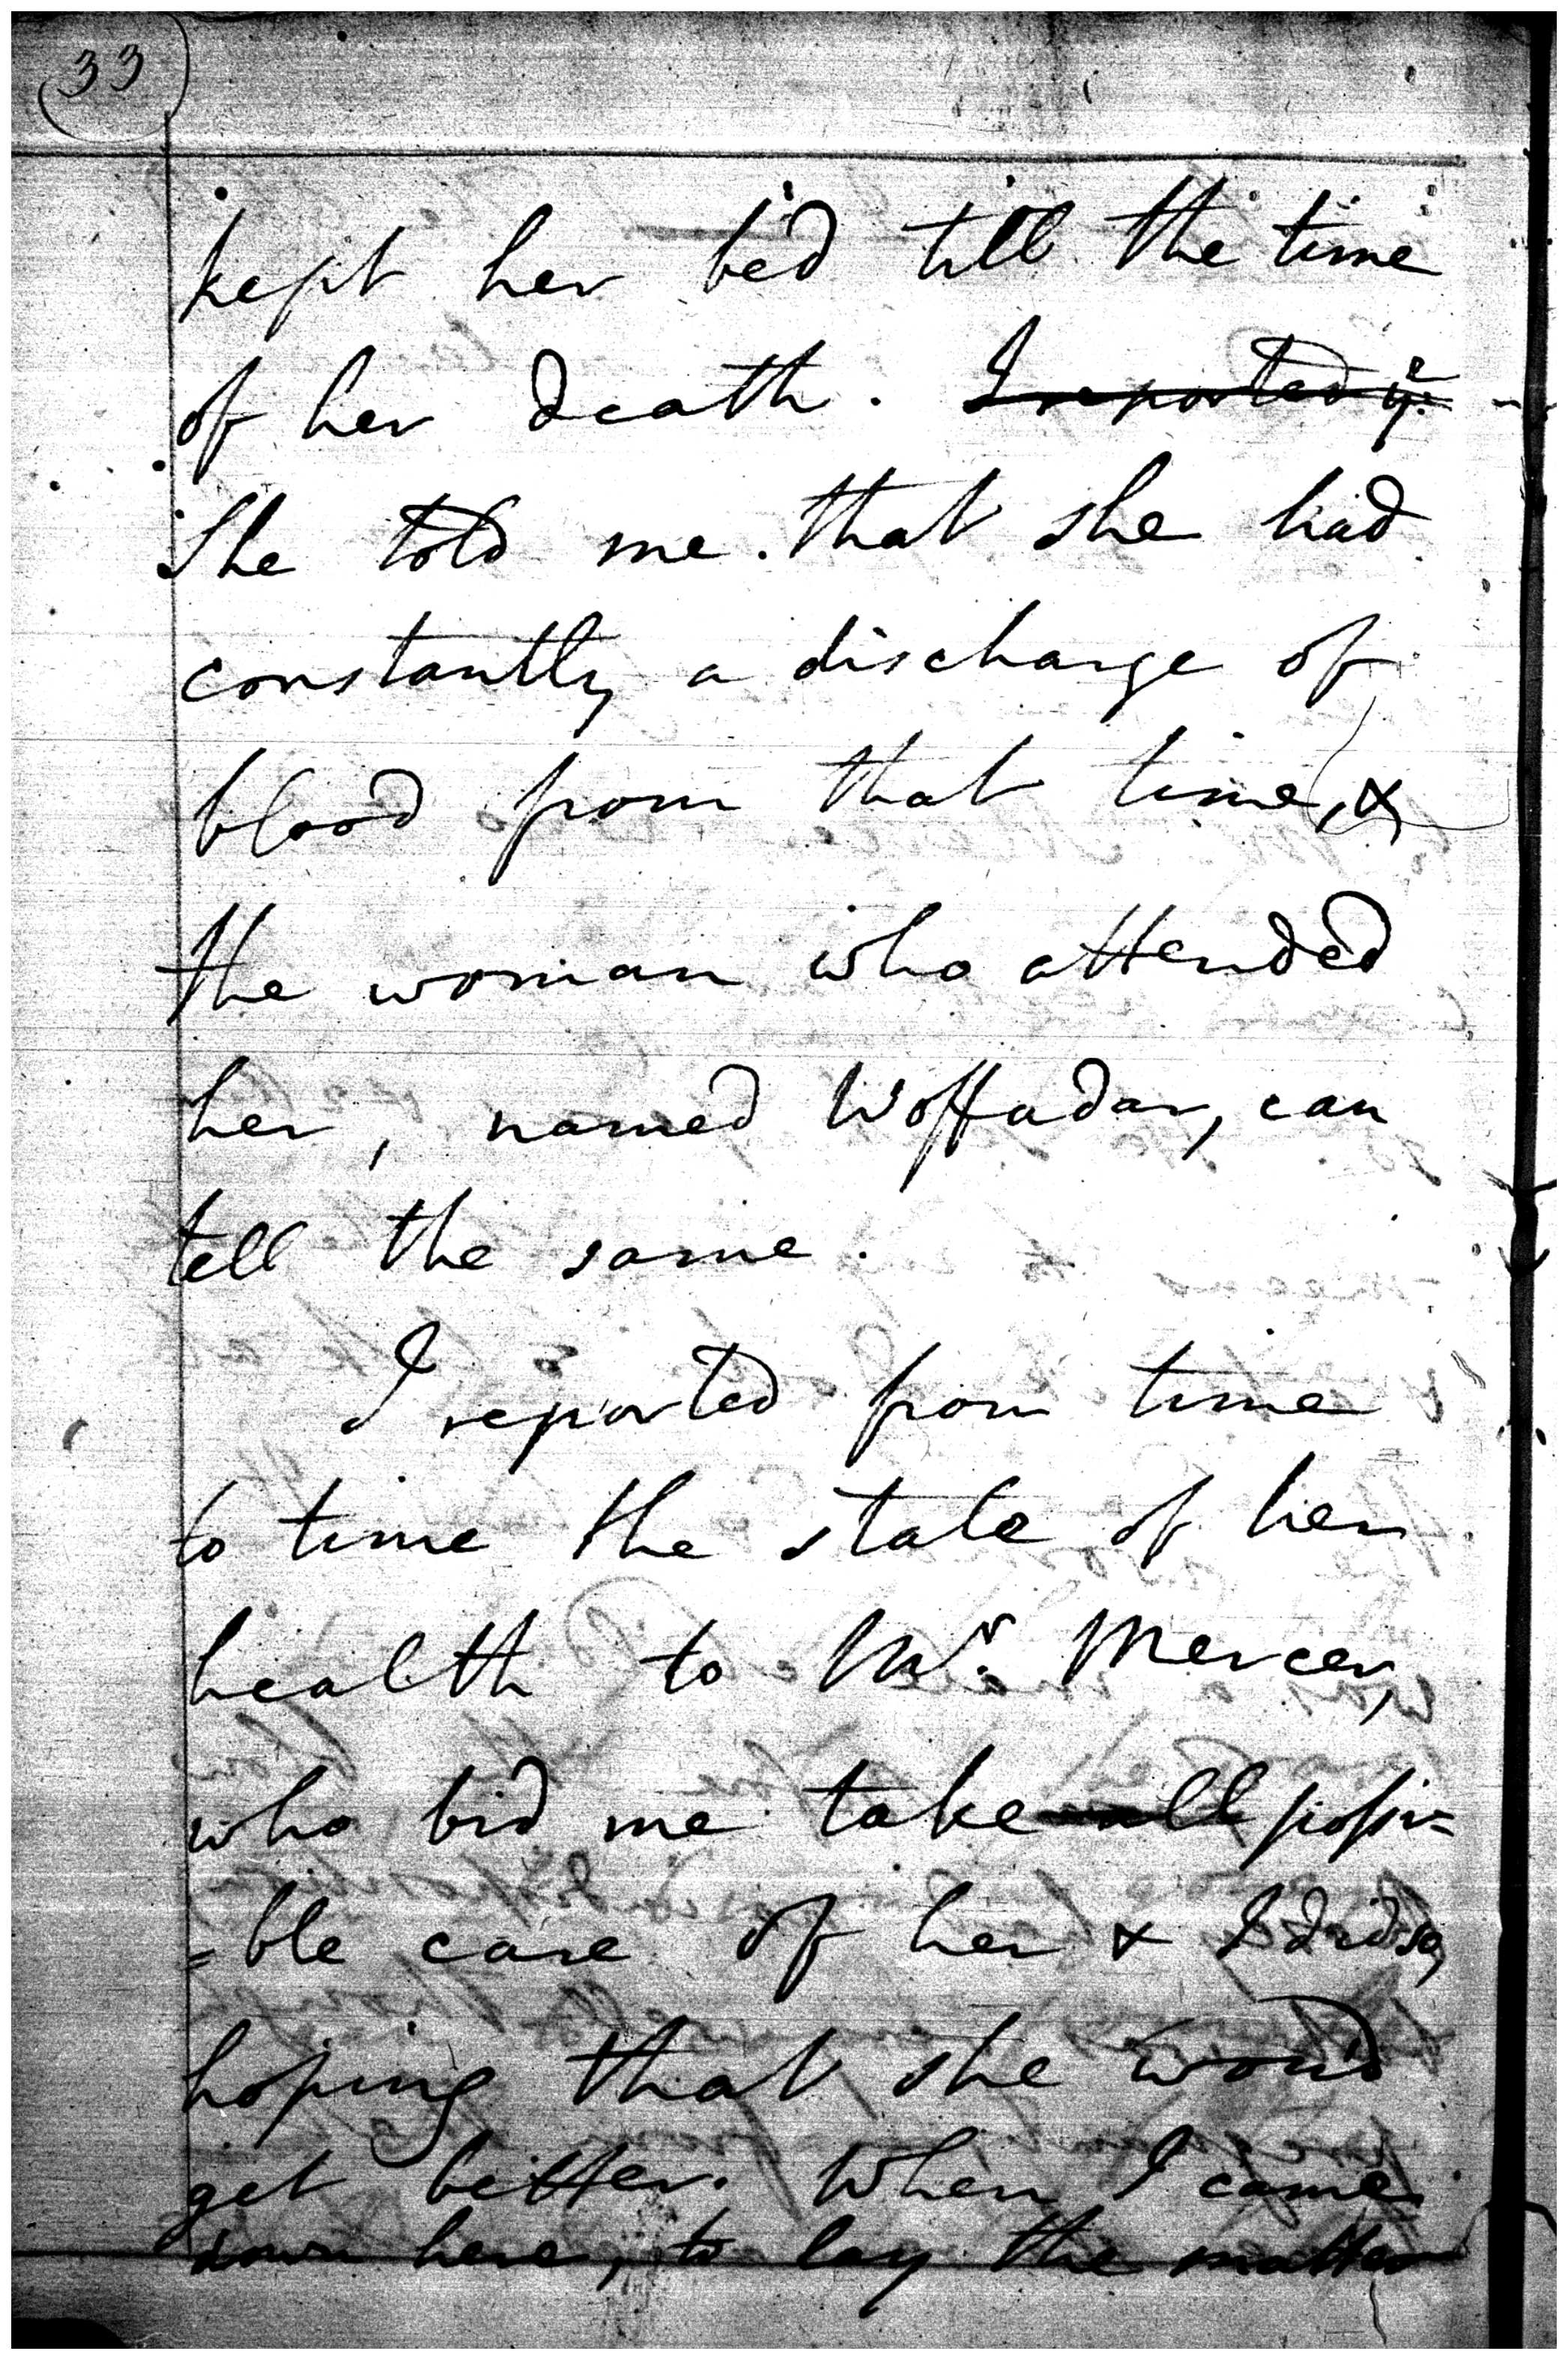 33
kept her bed till the time
of her death. I reported ye
She told me that she had
constantly a discharge of
blood from that time, &
the woman who attended
her, named Woffadar, can
tell the same.
I reported from time
to time the state of her
health to Mr. Mercer,
who bid me take all possi=
=ble care of her & I did so,
hoping that she wou'd
get better. When I came
down here, to lay the matter